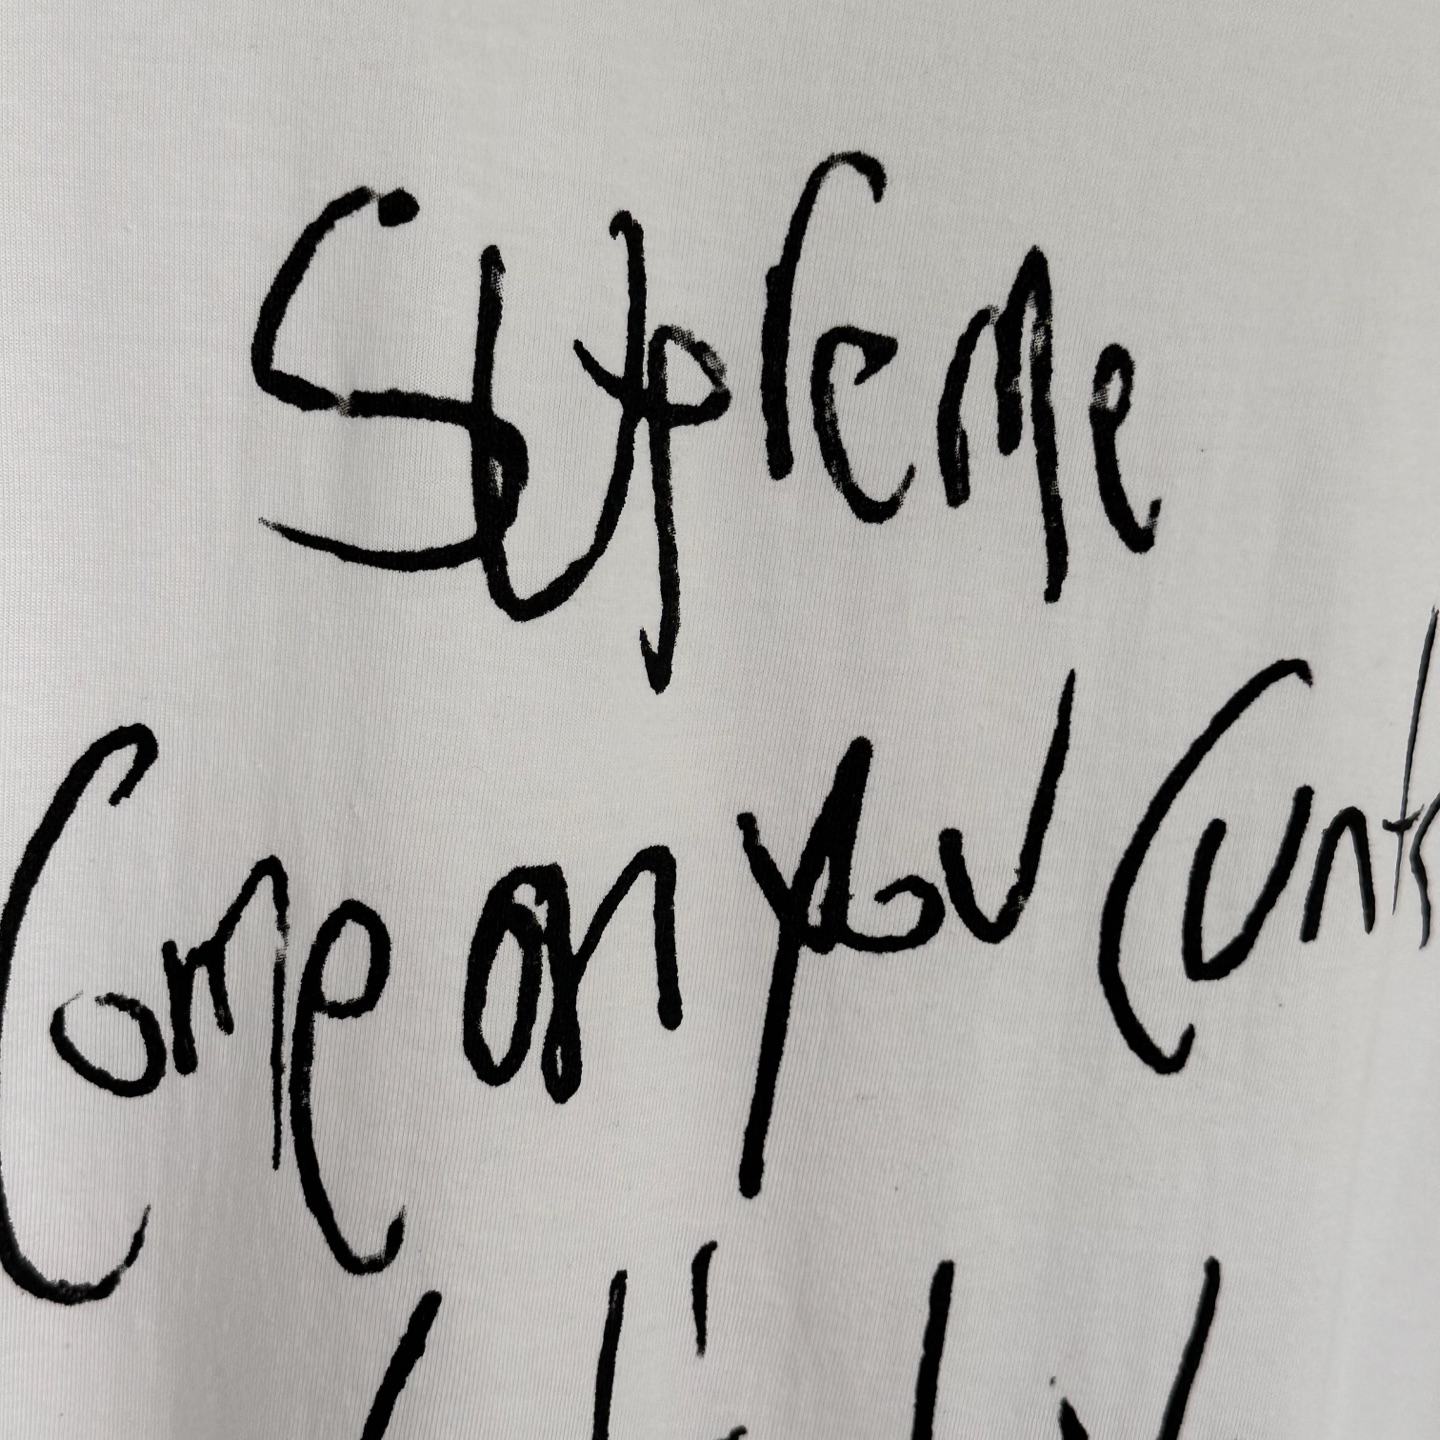 Supreme
Come on you cunts